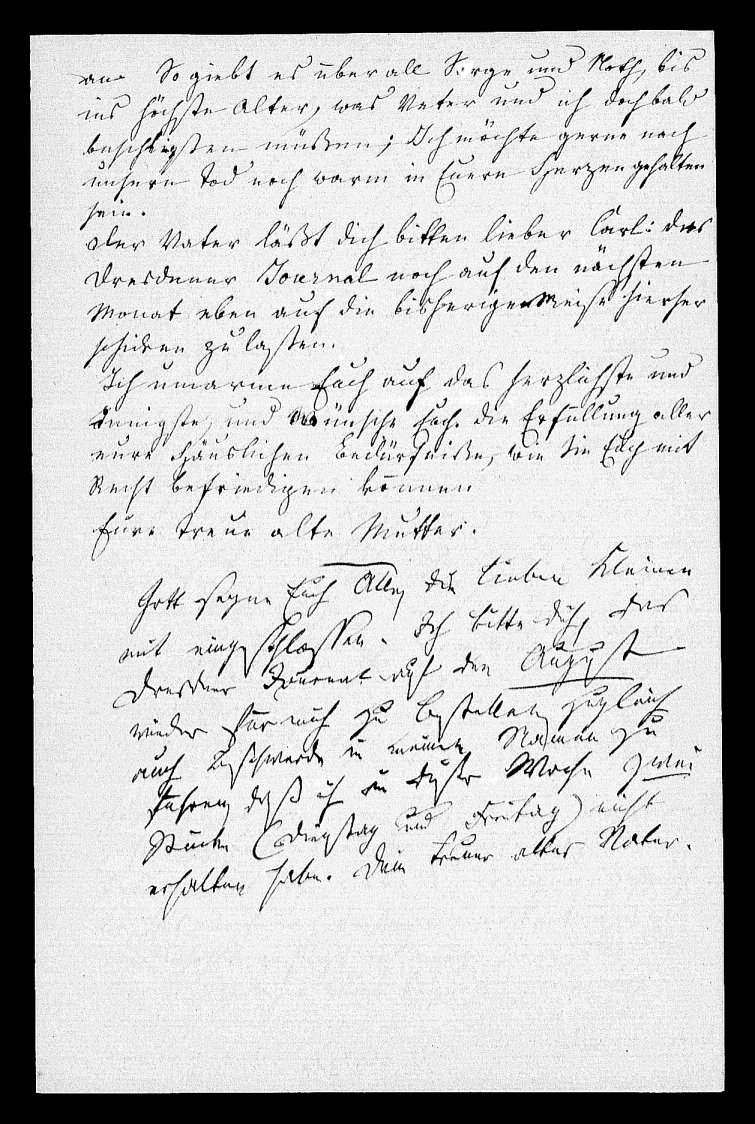 an. So giebt es überall Sorge und Noth, bis
ins höchste Alter, was Vater und ich doch bald
beschließen müssen; Ich möchte gerne nach
unsern Tod noch warm in Euern Herzen gehalten
sein.
Der Vater läßt dich bitten lieber Carl: das
Dresdener Journal noch auf den nächsten
Monat eben auf die bisherige Weise hierher
schicken zu lassen.
Ich umarme Euch auf das herzlichste und
innigste, und wünsche Euch die Erfüllung aller
eure häuslichen Bedürfniße, wie Sie Euch mit
Recht befriedigen können
Eure treue alte Mutter.
Gott segne Euch Alle, die lieben Kleinen
mit eingeschlossen. Ich bitte dich, das
Dresdner Journal auf den August
wieder für mich zu bestellen, zugleich
auch Beschwerde in meinem Namen zu
führen, daß ich in dieser Woche zwei
Stücke (Dienstag und Freitag) nicht
erhalten habe. Dein treuer alter Vater.